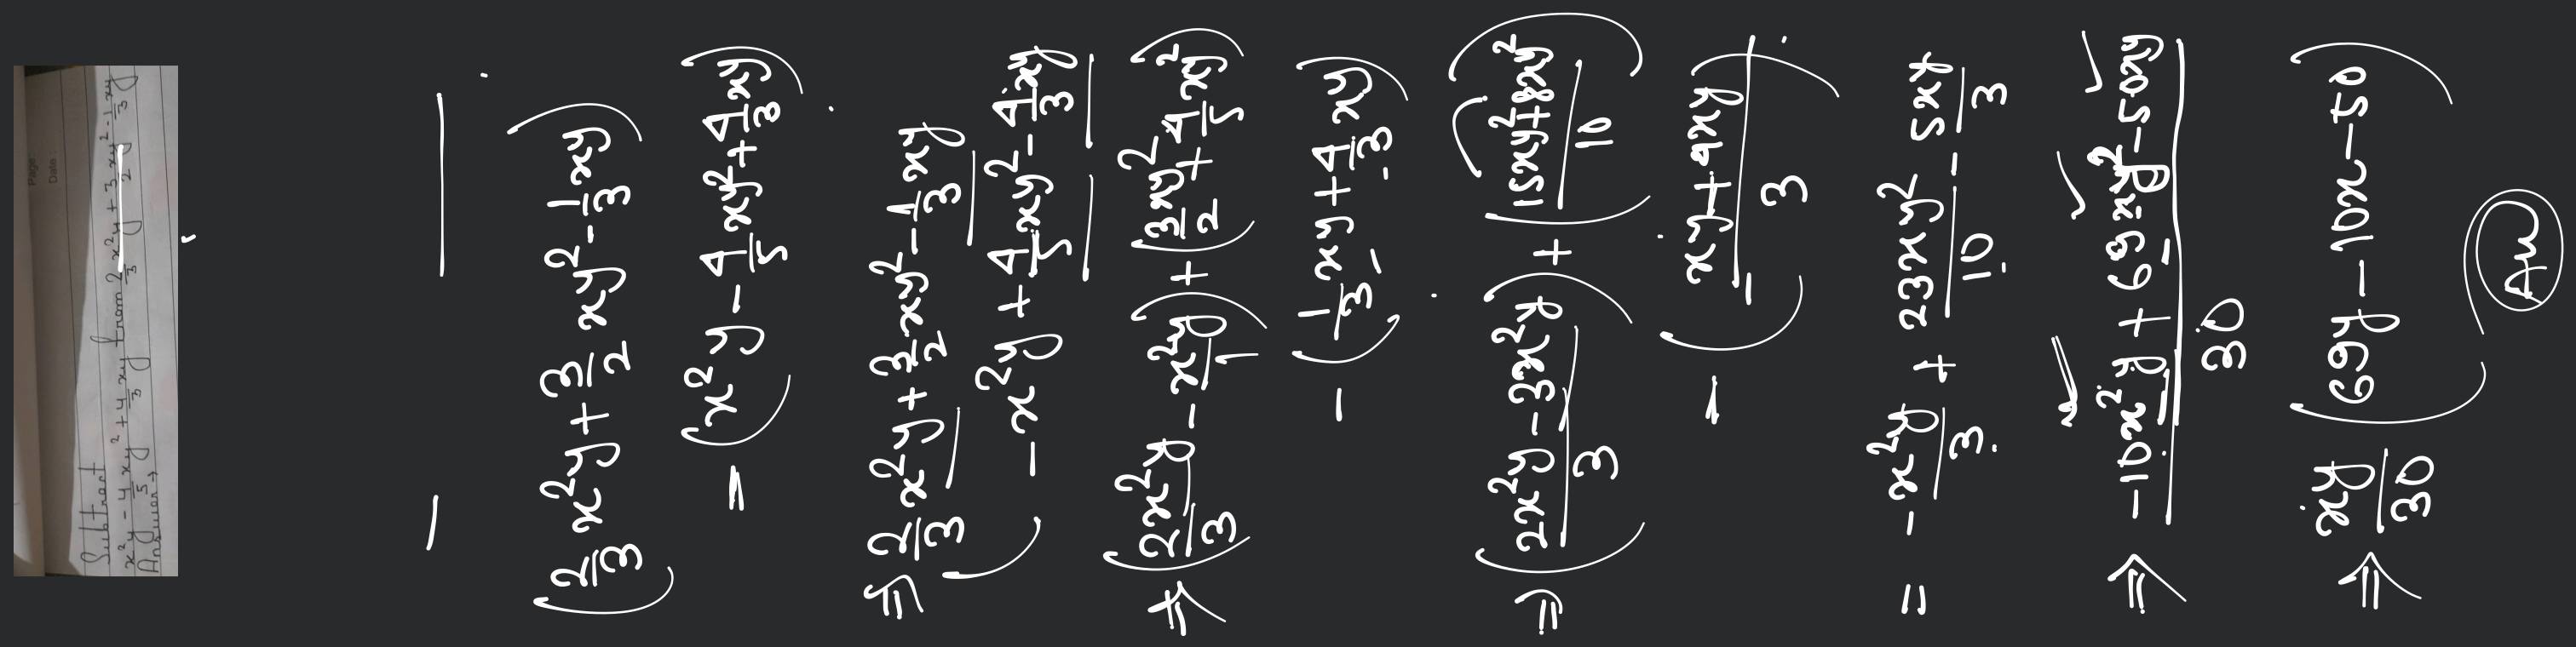 Page:
Date:
Subtract
x²y - 4/5 xy² + 4/3 xy from 2/3 x²y + 3/2 xy² - 1/3 xy
Answer →
(2/3 x²y + 3/2 xy² - 1/3 xy)
= (x²y - 4/5 xy² + 4/3 xy)
⇒ 2/3 x²y + 3/2 xy² - 1/3 xy
- x²y + 4/5 xy² - 4/3 xy
⇒ (2x²y/3 - x²y/1) + (3xy²/2 + 4/5 xy²)
- (1/3 xy + 4/3 xy)
= (2x²y - 3x²y/3) + (15xy² + 8xy²/10)
- (xy + 4xy/3)
= - x²y/3 + 23xy²/10 - 5xy/3
⇒ -10x²y + 69xy² - 50xy/30
⇒ xy/30 (69y - 10x - 50)
Ans